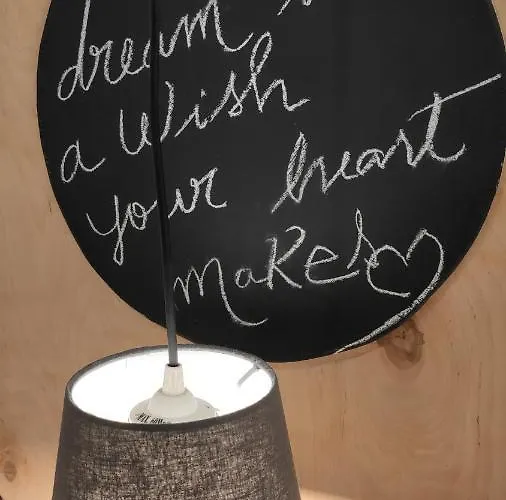 dream
a wish
your heart
makes